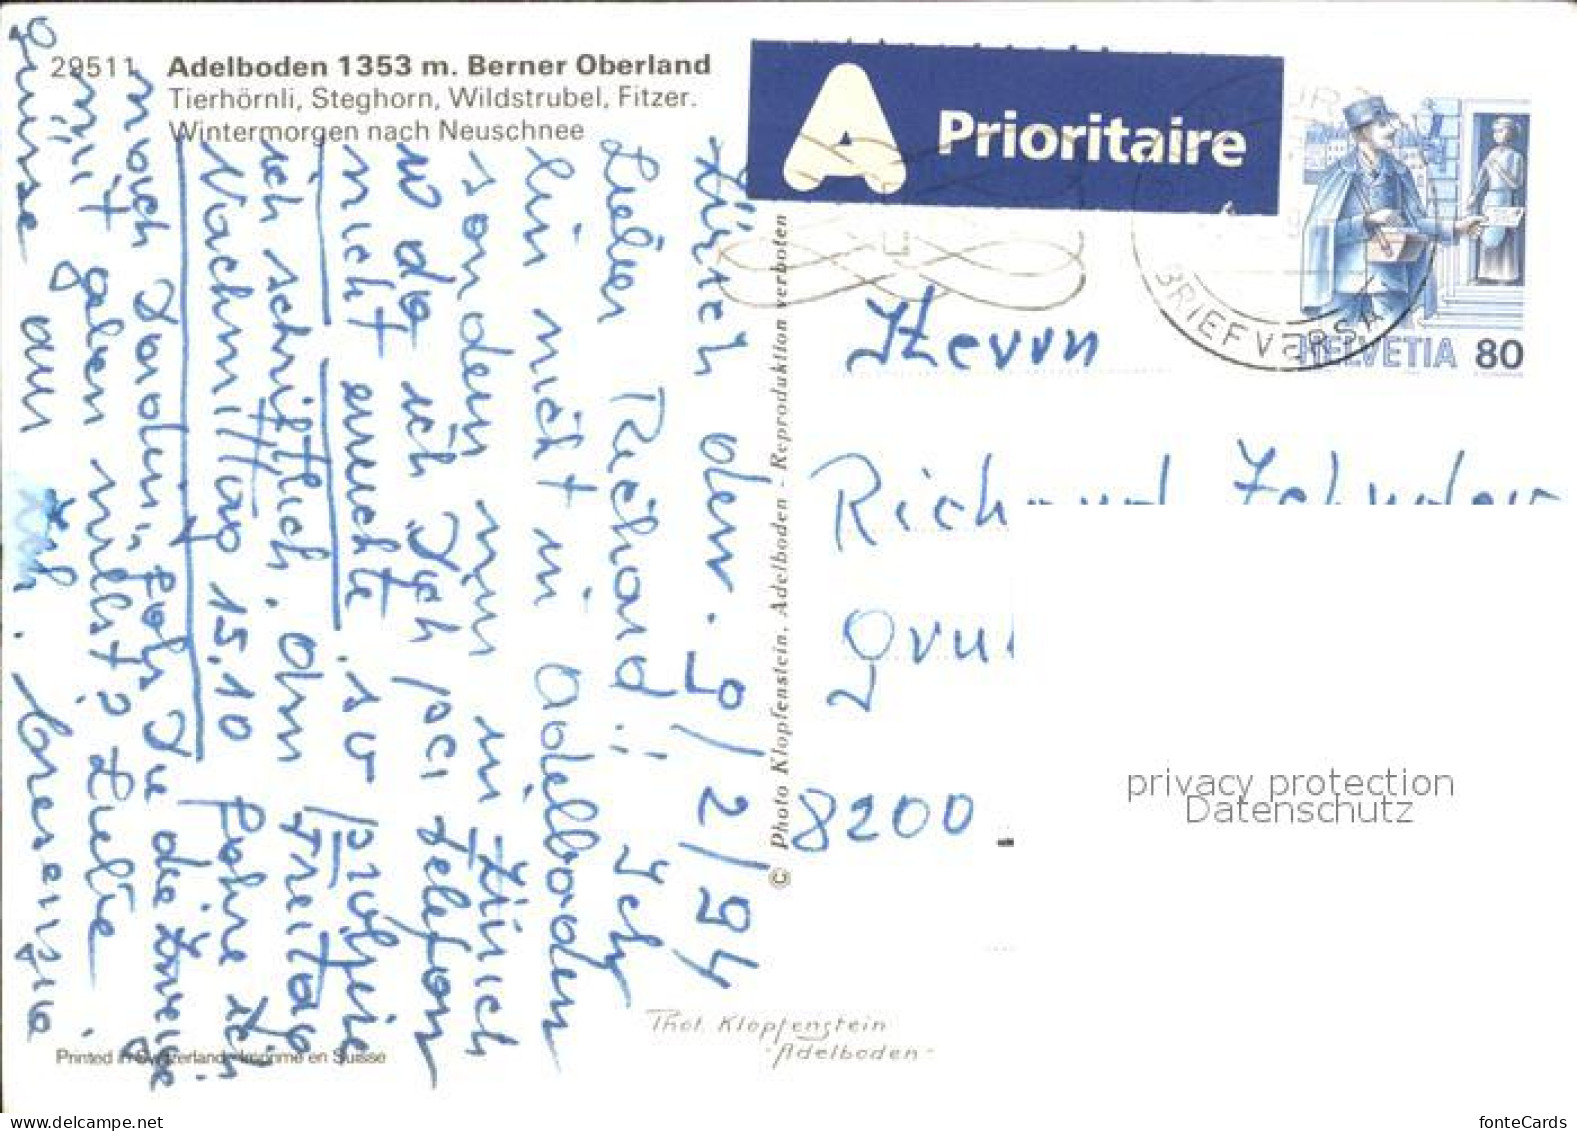 29511 Adelboden 1353 m. Berner Oberland
Tierhörnli, Steghorn, Wildstrubel, Fitzer.
Wintermorgen nach Neuschnee
A Prioritaire
BRIEFVERSA
HELVETIA 80
Zürich den. 10/2/94
Lieber Richard!! Ich
bin nicht in Adelboden
sondern nun in Zürich
wo da ich Dich per Telefon
nicht erreichte. so probiere
ich schriftlich. Am Freitag
Nachmittag 15.10 fahre ich
nach
mit geben willst? Liebe
Grüsse am
© Photo Klopfenstein, Adelboden - Reproduktion verboten
Herrn
Richard
8200
privacy protection
Datenschutz
Phot. Klopfenstein
-Adelboden-
Printed in Switzerland - Imprimé en Suisse
www.delcampe.net
fonteCards